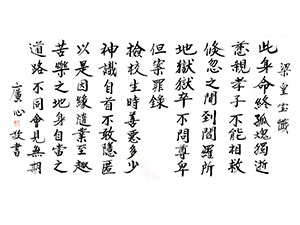 梁皇宝懺
此身命終孤魂獨逝
慈親孝子不能相救
倐忽之間到閻羅所
地獄獄卒不問尊卑
但案罪錄
捡校生時善惡多少
神識自首不敢隱匿
以是因緣隨業至趣
苦樂之地身自當之
道路不同會見無期
廣心敬書